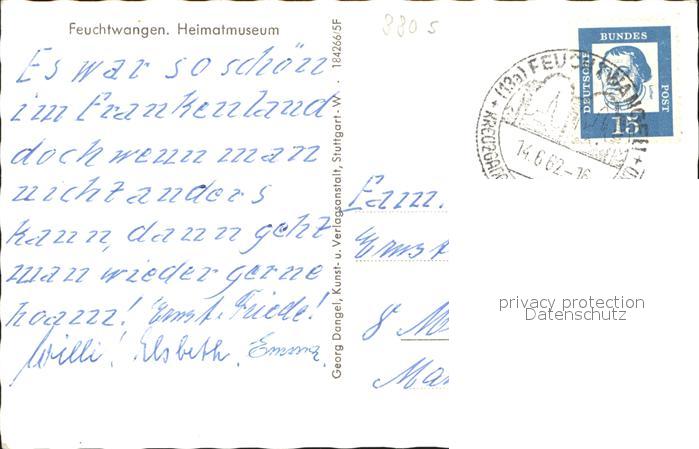 Feuchtwangen. Heimatmuseum
Es war so schön
im Frankenland
doch wenn man
nicht anders
kann, dann geht
man wieder gerne
hoam! Ernst. Friede!
Willi! Elsbeth. Emma.
184266/5F
Georg Dangel, Kunst- u. Verlagsanstalt, Stuttgart-W.
880 5
BUNDES
DEUTSCHE
POST
15
(13a) FEUCHTWANGEN
14.6.62.-16
Fam.
Ernst
8 M
Mar
privacy protection
Datenschutz